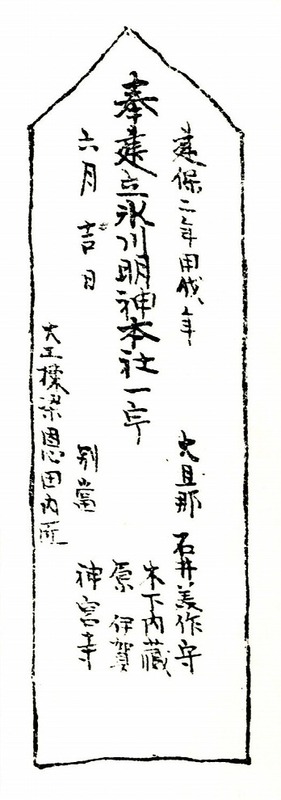 建保二年甲戌年
大旦那 石井美作守
木下内藏
原 伊賀
奉建立氷川明神本社一宇
六月吉日
別當 神宮寺
大工棟梁恩田内匠